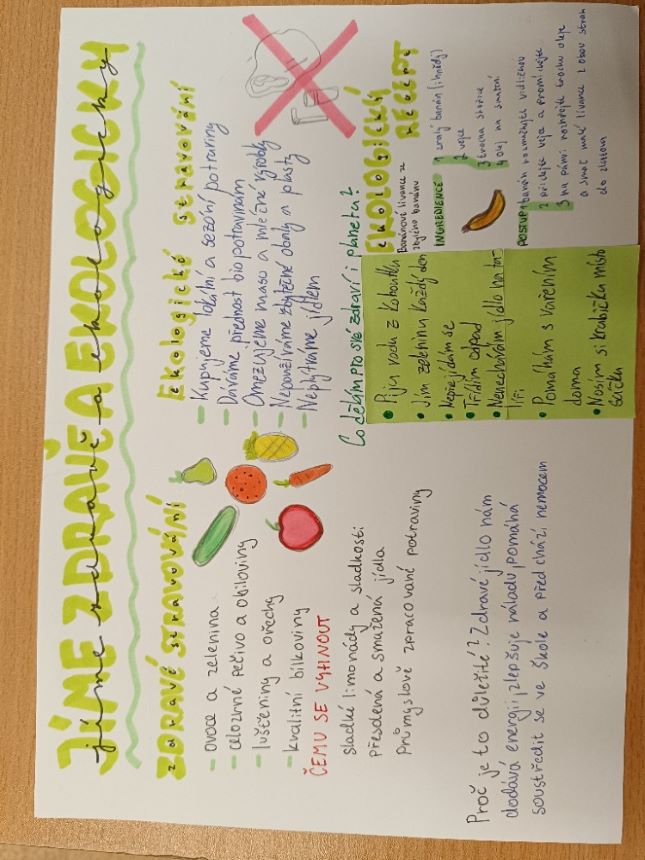 JÍME ZDRAVĚ A EKOLOGICKY
jíme zdravě a ekologicky
ZDRAVÉ STRAVOVÁNÍ
zdravé stravování
- ovoce a zelenina
- celozrné pečivo a obiloviny
- luštěniny a ořechy
- kvalitní bílkoviny
ČEMU SE VYHNOUT
sladké limonády a sladkosti
přesolená a smažená jídla
průmyslově zpracované potraviny
Proč je to důležité? Zdravé jídlo nám
dodává energii, zlepšuje náladu, pomáhá
soustředit se ve škole a předchází nemocem
Ekologické stravování
- Kupujeme lokální a sezóní potraviny
- Dáváme přednost biopotravinám
- Omezujeme maso a mléčné výrobky
- Nepoužíváme zbytečné obaly a plasty
- Neplýtváme jídlem
Co dělám pro své zdraví i planetu?
• Piju vodu z kohoutku
• Jím zeleninu každý den
• Nepřejídám se
• Třídím odpad
• Nenechávám jídlo na ta-
líři
• Pomáhám s vařením
doma
• Nosím si krabičku místo
sáčku
EKOLOGICKÝ
RECEPT
Banánové lívance ze
zbylého banánu
INGREDIENCE
1 zralý banán (i hnědý)
2 vejce
3 trocha skořice
4 olej na smažení
POSTUP
1 banán rozmačkejte vidličkou
2 přidejte vejce a promíchejte
3 na pánvi rozhřejte trochu oleje
a smaž malé lívance z obou stran
do zlatova